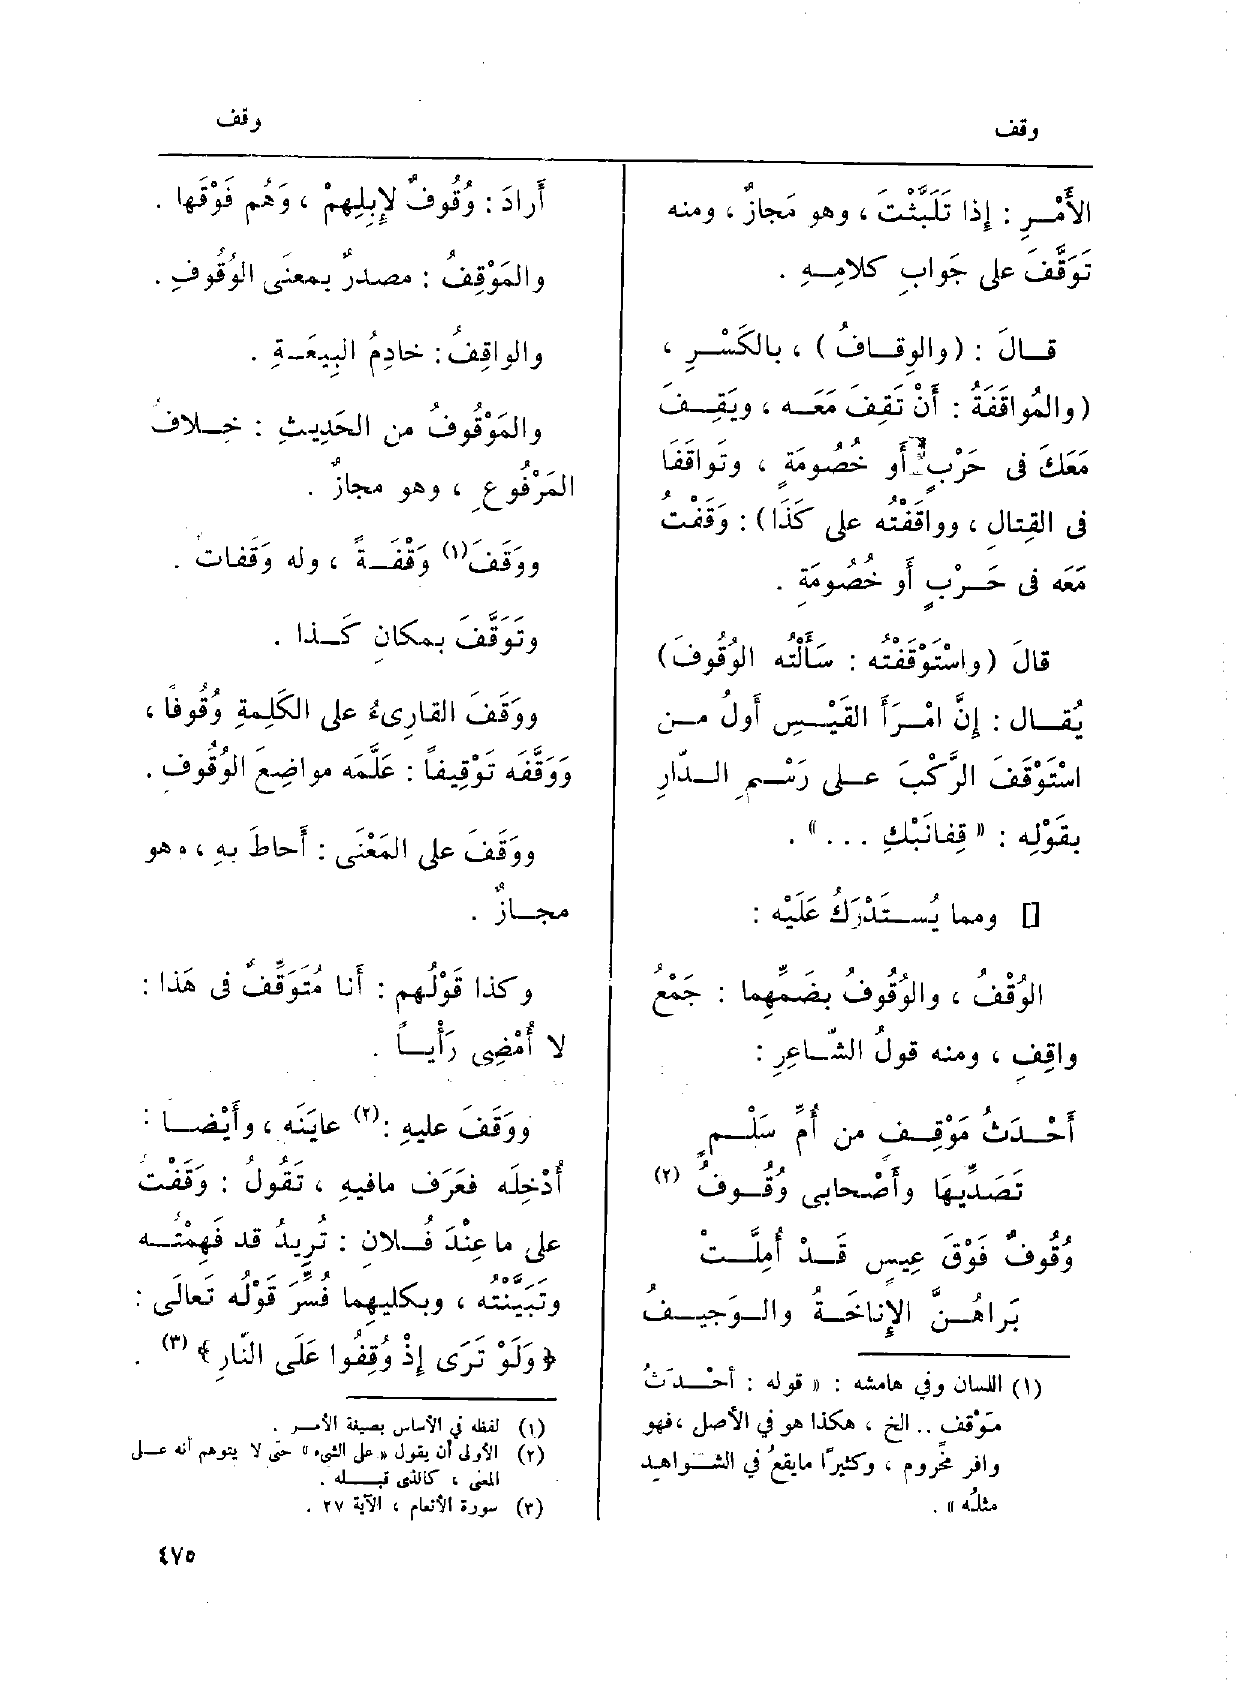 وقف
وقف
الأَمْـرِ : إِذا تَلَبَّثْتَ ، وهو مَجازٌ ، ومنه
تَوَقَّفَ على جَوابِ كَلامِـهِ .
قـالَ : (والوِقـافُ) ، بالكَسْـرِ ،
(والمُواقَفَةُ : أَنْ تَقِفَ مَعَـه ، ويَقِـفَ
مَعَكَ فى حَرْبٍ أَو خُصُومَةٍ ، وتَواقَفَا
فى القِتالِ ، وواقَفْتُه على كَذَا) : وَقَفْتُ
مَعَه فى حَـرْبٍ أَو خُصُومَةٍ .
قالَ (واسْتَوْقَفْتُه : سَأَلْتُه الوُقُوفَ)
يُقـال : إِنَّ امْـرَأَ القَيْـسِ أَولُ مـن
اسْتَوْقَفَ الرَّكْبَ عـلى رَسْمِ الـدّارِ
بقَوْلِه : « قِفانَبْكِ ... » .
[] ومما يُسـتَدْرَكُ عَلَيْه :
الوُقْفُ ، والوُقُوفُ بضَمِّهِما : جَمْعُ
واقِفٍ ، ومنه قولُ الشّـاعِرِ :
أَحْـدَثُ مَوْقِـفٍ من أُمِّ سَلْـمٍ
تَصَدِّيهَا وأَصْحابِى وُقُـوفُ (٢)
وُقُوفٌ فَوْقَ عِيسٍ قَـدْ أُمِلَّـتْ
بَراهُـنَّ الإِناخَـةُ والـوَجِيـفُ
(١) اللسان وفي هامشه : « قوله : أحْـدَثُ
مَوْقفٍ .. الخ ، هكذا هو في الأصل ،فهو
وافر مخروم ، وكثيرًا مايقعُ في الشـواهد
مثلُه » .
أَرادَ : وُقُوفٌ لإِبِلِهِمْ ، وَهُم فَوْقَها .
والمَوْقِفُ : مصدرٌ بمعنَى الوُقُوفِ .
والواقِفُ : خادِمُ البِيعَـةِ .
والمَوْقُوفُ من الحَدِيثِ : خِـلافُ
المَرْفُوعِ ، وهو مجازٌ .
ووَقَفَ(١) وَقْفَـةً ، وله وَقَفات .
وتَوَقَّفَ بمكانِ كَـذا .
ووَقَفَ القارِىءُ على الكَلِمةِ وُقُوفاً ،
وَوَقَّفَه تَوْقِيفاً : عَلَّمَه مواضِعَ الوُقُوفِ .
ووَقَفَ على المَعْنَى : أَحاطَ بهِ ، وهو
مجـازٌ .
وكذا قَوْلُهم : أَنا مُتَوَقِّفٌ فى هَذا :
لا أُمْضِى رَأْيـاً .
ووَقَفَ عليهِ :(٢) عايَنَه ، وأَيْضـا :
أُدْخِلَه فعَرَف مافيهِ ، تَقُولُ : وَقَفْتُ
على ما عِنْدَ فُـلانٍ : تُرِيدُ قد فَهِمْتُـه
وتَبَيَّنْتُه ، وبكليهِما فُسِّرَ قَوْلُه تَعالَى :
﴿وَلَوْ تَرَى إِذْ وُقِفُوا عَلَى النّارِ﴾ (٣) .
(١) لفظه في الأساس بصيغة الأمـر .
(٢) الأولى أن يقول «على الشىء» حتى لا يتوهم أنه عـلى
المعنى ، كالذى قبـله .
(٣) سورة الأنعام ، الآية ٢٧ .
٤٧٥